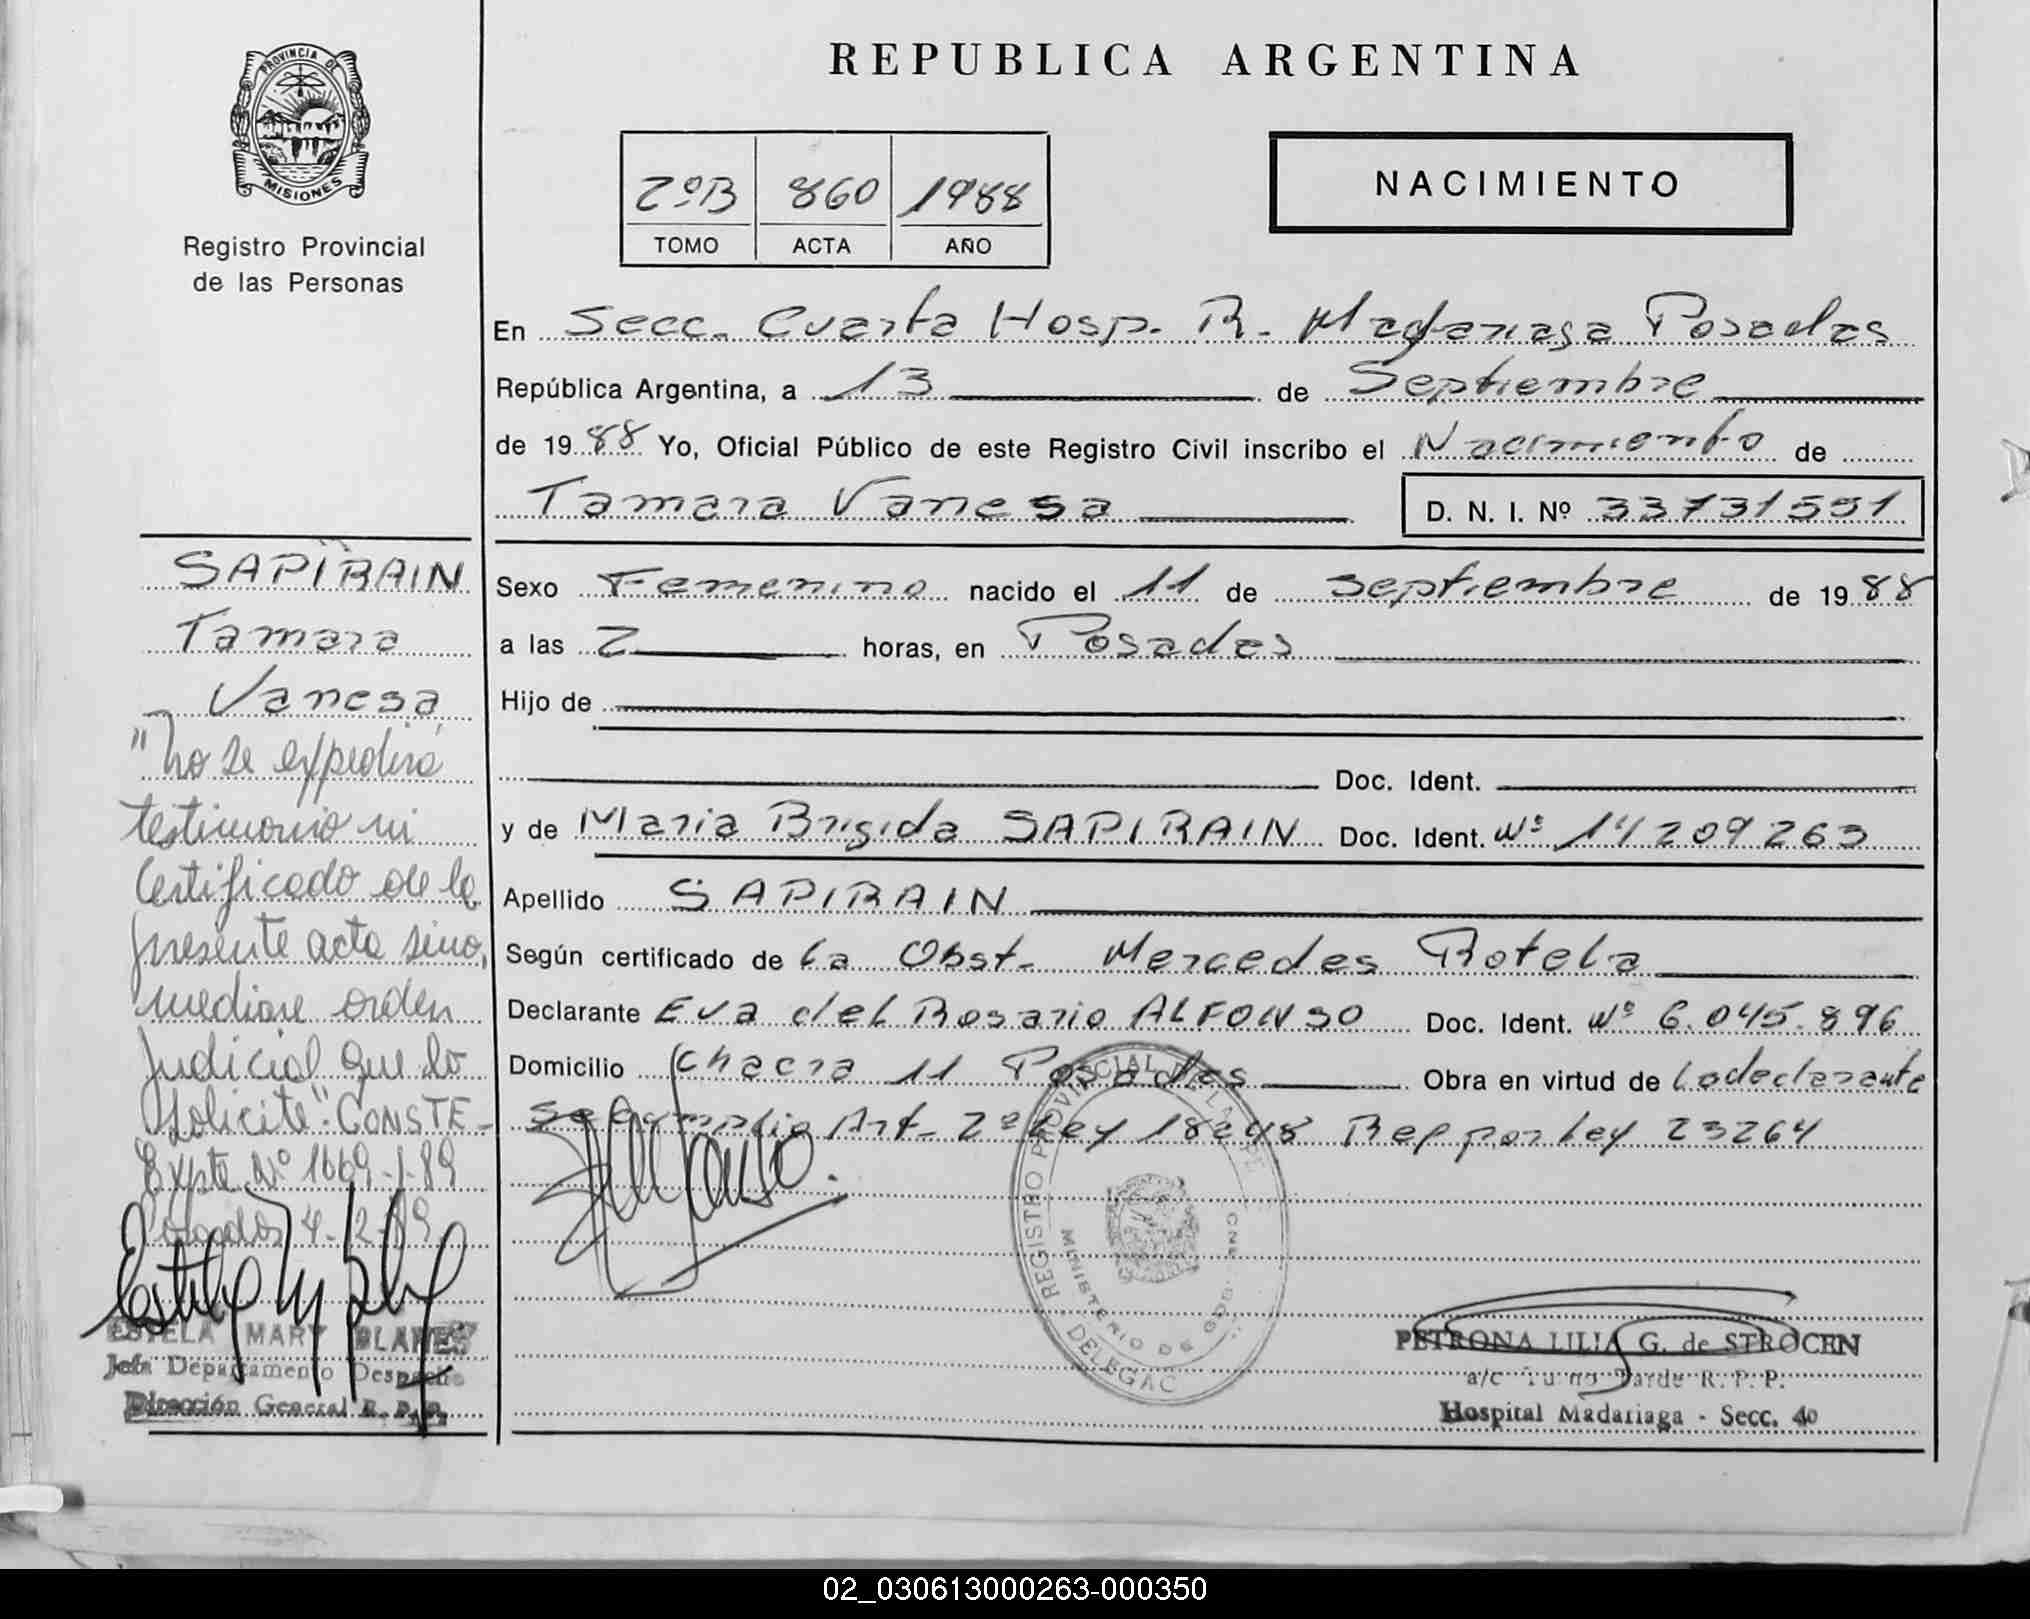 PROVINCIA DE
MISIONES
Registro Provincial
de las Personas
REPUBLICA ARGENTINA
2ºB 860 1988
TOMO ACTA AÑO
NACIMIENTO
En Secc. Cuarta Hosp. R. Madariaga Posadas
República Argentina, a 13 de Septiembre
de 1988 Yo, Oficial Público de este Registro Civil inscribo el Nacimiento de
Tamara Vanesa D. N. I. Nº 33731591
Sexo Femenino nacido el 11 de septiembre de 1988
a las 2 horas, en Posadas
Hijo de
Doc. Ident.
y de Maria Brigida SAPIRAIN Doc. Ident. Nº 14209263
Apellido SAPIRAIN
Según certificado de la Obst. Mercedes Rotela
Declarante Eva del Rosario ALFONSO Doc. Ident. Nº 6.045.896
Domicilio Chacra 11 Posadas Obra en virtud de la declarante
Se cumplio Art. 2º Ley 18248 Rep por Ley 23264
SAPIRAIN
Tamara
Vanesa
"No se expedirá
testimonio ni
Certificado de la
presente acta sino,
mediare orden
Judicial que lo
solicite". CONSTE-
Expte Nº 1669-J-89
Posadas 4-12-89
ESTELA MARY BLANES
Jefa Departamento Despacho
Dirección General R. P. P.
REGISTRO PROVINCIAL DE LAS PE
MINISTERIO DE GOB
DELEGAC
PETRONA LILIA G. de STROCEN
a/c Turno Tarde R. P. P.
Hospital Madariaga - Secc. 4o
02_030613000263-000350